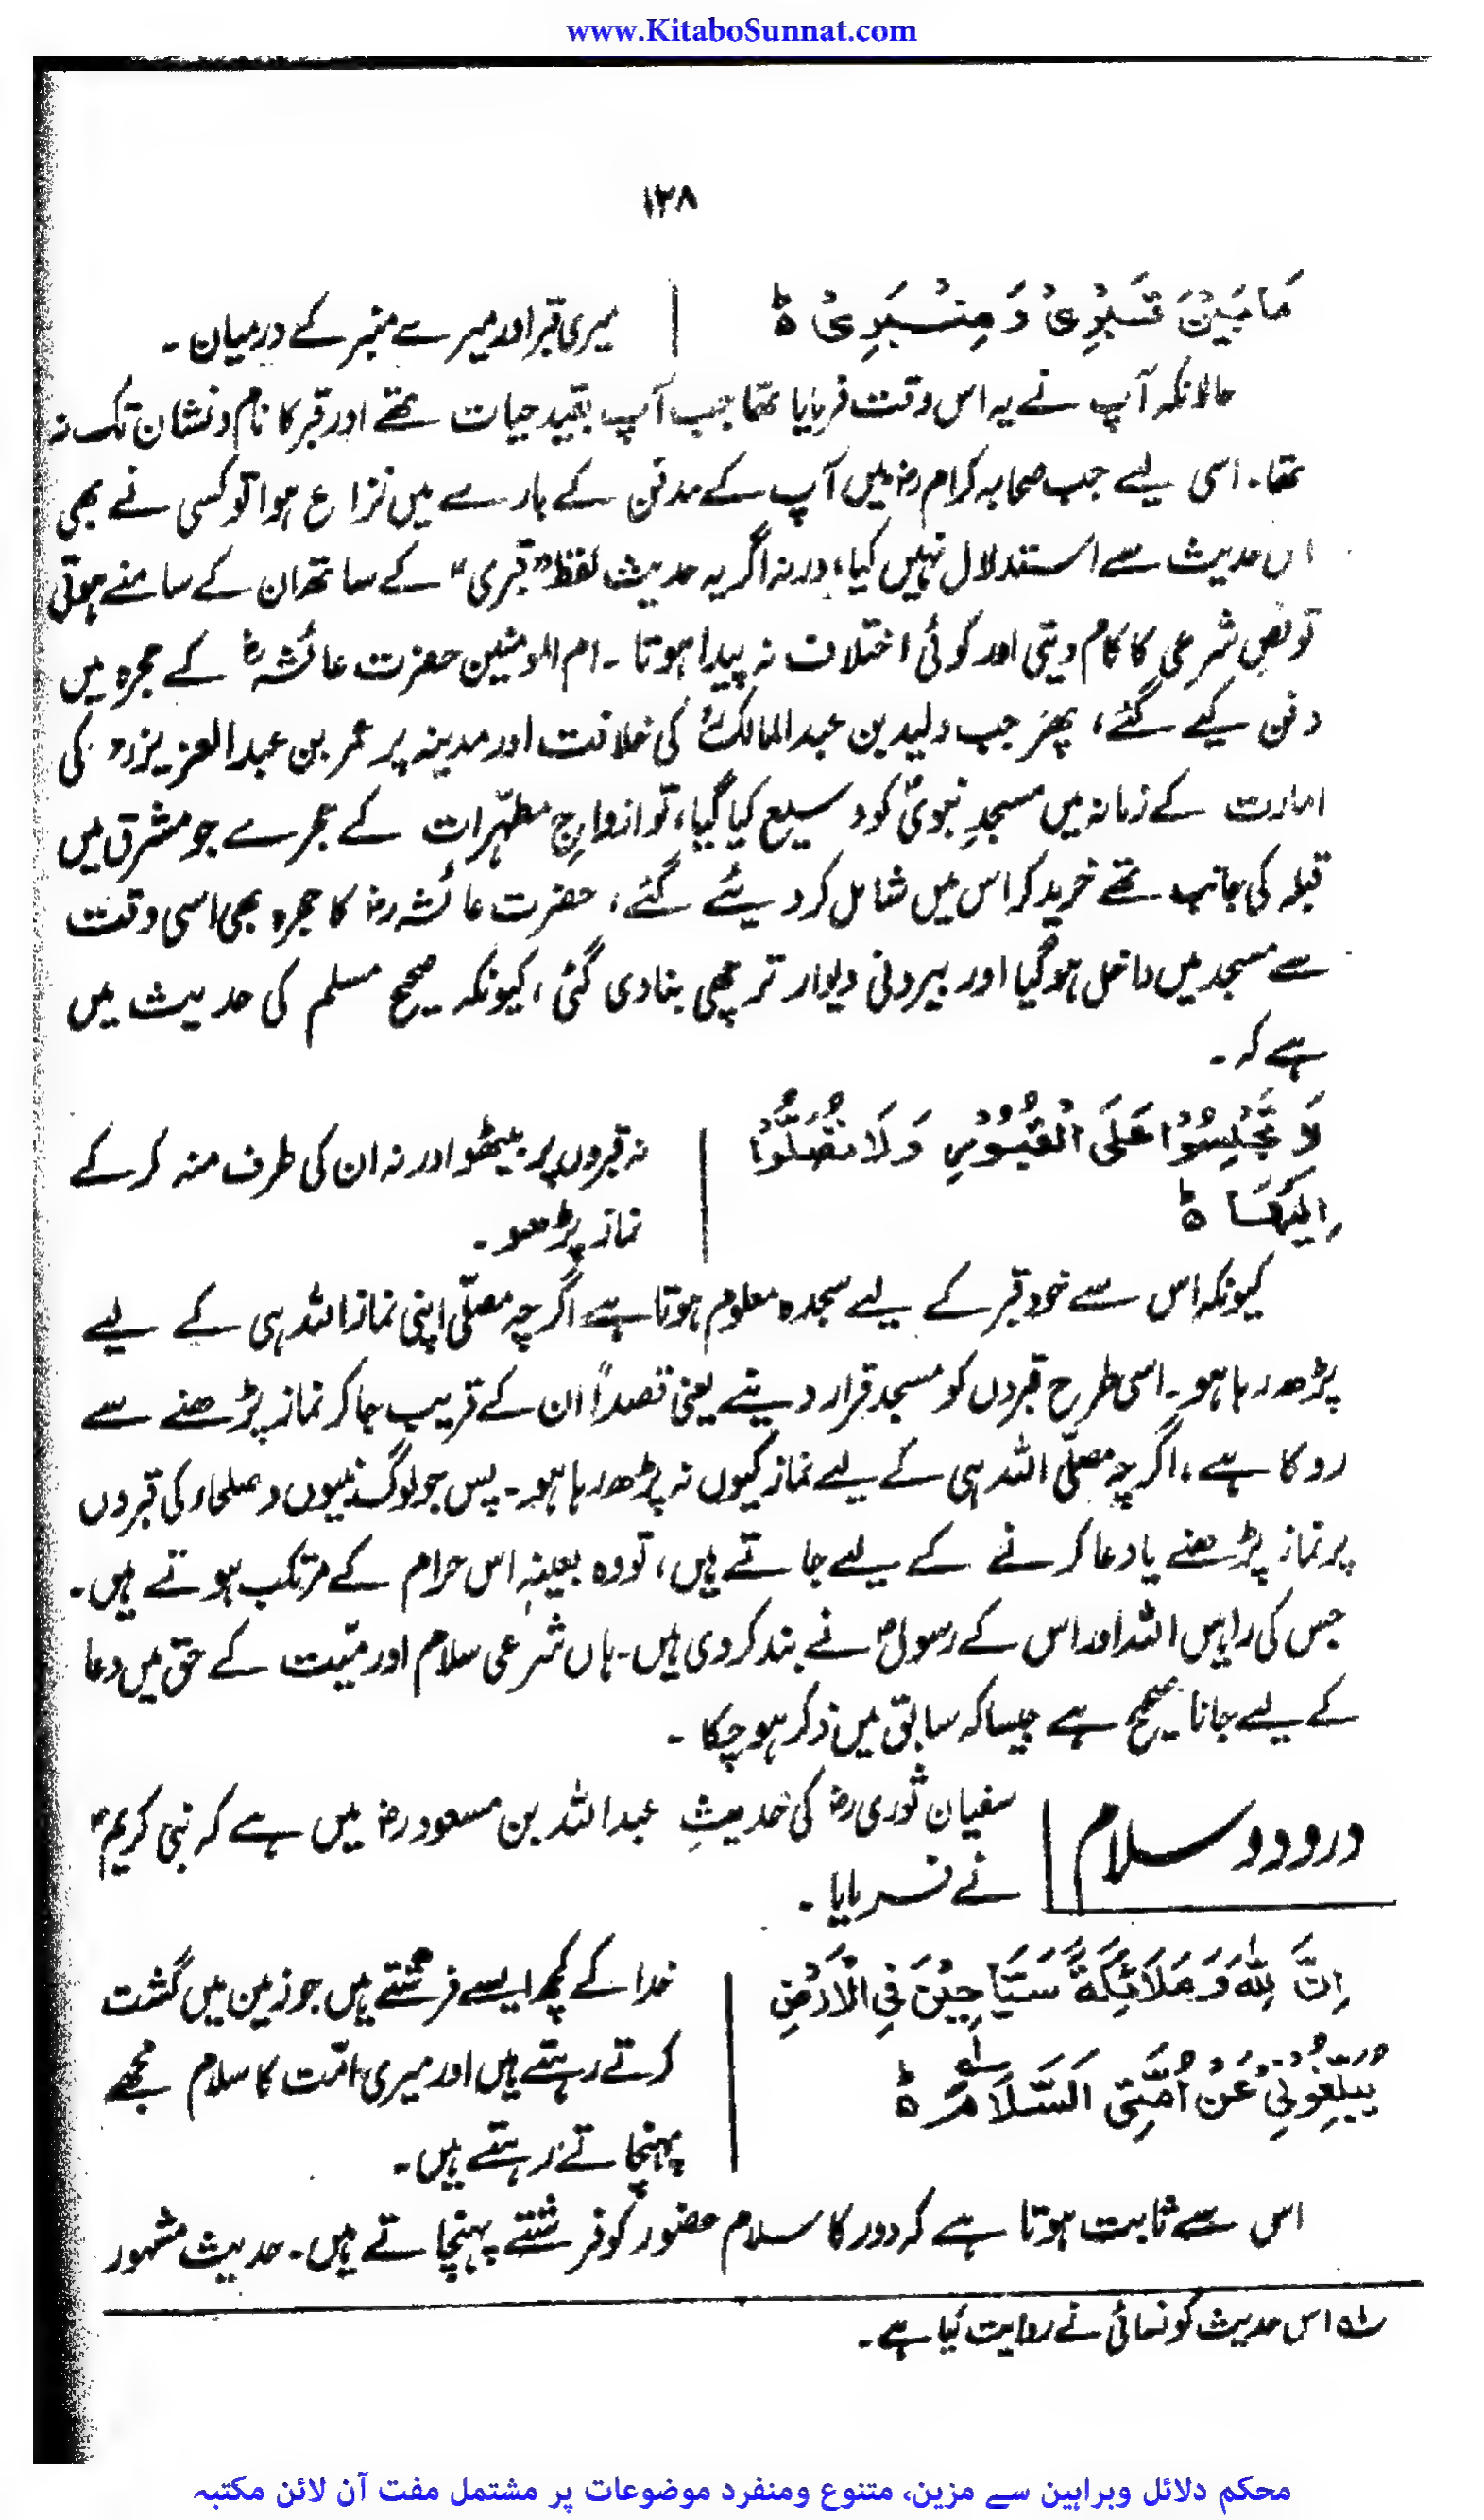 www.KitaboSunnat.com
۱۲۸
مَا بَيْنَ قَبْرِیْ وَ مِنْبَرِیْ ؕ
میری قبر اور میرے منبر کے درمیان ۔
حالانکہ آپ نے یہ اس وقت فرمایا تھا جب آپ بقید حیات تھے اور قبر کا نام و نشان تک نہ
تھا ۔ اسی لیے جب صحابہ کرام رض میں آپ کے مدفن کے بارے میں نزاع ہوا تو کسی نے بھی
اس حدیث سے استدلال نہیں کیا ، ورنہ اگر یہ حدیث لفظ ”قبری“ کے ساتھ ان کے سامنے ہوتی
تو نص شرعی کا کام دیتی اور کوئی اختلاف نہ پیدا ہوتا ۔ ام المومنین حضرت عائشہ رض کے حجرہ میں
دفن کیے گئے ، پھر جب ولید بن عبدالمالک کی خلافت اور مدینہ پر عمر بن عبدالعزیز رح کی
امارت کے زمانہ میں مسجدِ نبویؐ کو وسیع کیا گیا ، تو ازواجِ مطہّرات کے حجرے جو مشرق میں
قبلہ کی جانب تھے خرید کر اس میں شامل کر دیئے گئے ، حضرت عائشہ رض کا حجرہ بھی اسی وقت
سے مسجد میں داخل ہو گیا اور بیرونی دیوار ترچھی بنا دی گئی ، کیونکہ صحیح مسلم کی حدیث میں
ہے کہ ۔
لَا تَجْلِسُوْا عَلَی الْقُبُوْرِ وَ لَا تُصَلُّوْا
اِلَيْهَا ؕ
نہ قبروں پر بیٹھو اور نہ ان کی طرف منہ کر کے
نماز پڑھو ۔
کیونکہ اس سے خود قبر کے لیے سجدہ معلوم ہوتا ہے اگرچہ مصلّی اپنی نماز اللہ ہی کے لیے
پڑھ رہا ہو ۔ اسی طرح قبروں کو مسجد قرار دینے یعنی قصداً ان کے قریب جا کر نماز پڑھنے سے
روکا ہے ، اگرچہ مصلّی اللہ ہی کے لیے نماز کیوں نہ پڑھ رہا ہو ۔ پس جو لوگ نبیوں و صلحاء کی قبروں
پر نماز پڑھنے یا دعا کرنے کے لیے جاتے ہیں ، تو وہ بعینہٖ اس حرام کے مرتکب ہوتے ہیں ۔
جس کی راہیں اللہ اور اس کے رسولؐ نے بند کر دی ہیں ۔ ہاں شرعی سلام اور میّت کے حق میں دعا
کے لیے جانا صحیح ہے جیسا کہ سابق میں ذکر ہو چکا ۔
درود و سلام
سفیان ثوری رض کی حدیثِ عبداللہ بن مسعود رض میں ہے کہ نبی کریمؐ
نے فرمایا ۔
اِنَّ لِلّٰهِ وَ مَلَائِكَةً سَيَّاحِيْنَ فِی الْاَرْضِ
يُبَلِّغُوْنِیْ عَنْ اُمَّتِی السَّلَامَ ؕ ؎۱
خدا کے کچھ ایسے فرشتے ہیں جو زمین میں گشت
کرتے رہتے ہیں اور میری امّت کا سلام مجھے
پہنچاتے رہتے ہیں ۔
اس سے ثابت ہوتا ہے کہ دور کا سلام حضور کو فرشتے پہنچاتے ہیں ۔ حدیث مشہور
؎۱ اس حدیث کو نسائی نے روایت کیا ہے ۔
محکم دلائل وبراہین سے مزین، متنوع ومنفرد موضوعات پر مشتمل مفت آن لائن مکتبہ